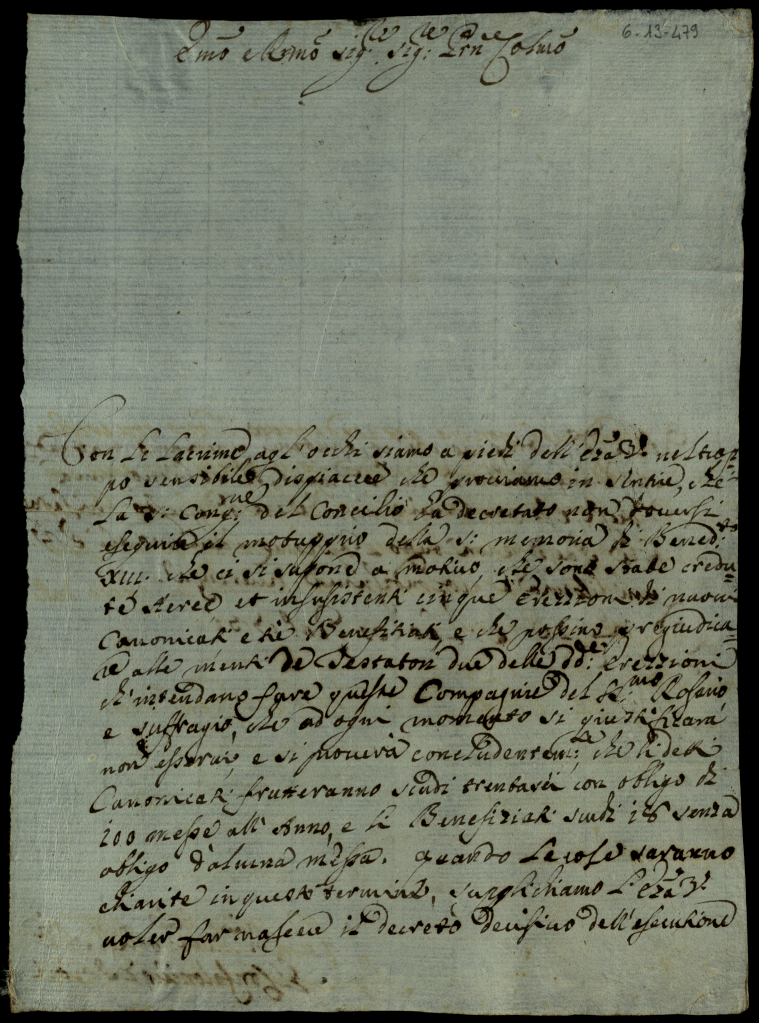 6-13-479
Emo e Rmo Sig.re Sig.re Prn Colmo
Con le lacrime agl'occhi siamo a piedi dell'Eza V. nel trop=
po sensibile dispiacere che proviamo in sentire, che
la S. Cong.ne del Concilio ha decretato non doversi
eseguire il motuproprio della S: memoria di Bened.to
XIII. che ci si supone a motivo, che sono state credu=
te aeree et insusistenti cinque Erezzioni di nuovi
Canonicati, e tre Benefiziati, e che possino pregiudica=
re alle menti de Testatori due delle dd.e Erezzioni
ch'intendano fare queste Compagnie del SS.mo Rosario
e suffragio, che ad ogni momento si giustificará
non esservi, e si proverà concludentem.te che li detti
Canonicati frutteranno scudi trentasei con obligo di
100 messe all'Anno, e li Benefiziati scudi 18 senza
obligo d'alcuna messa. quando le cose saranno
chiarite in questo termine, supplichiamo l'Eza V.
voler far nascere il decreto decisivo dell'esecuzione